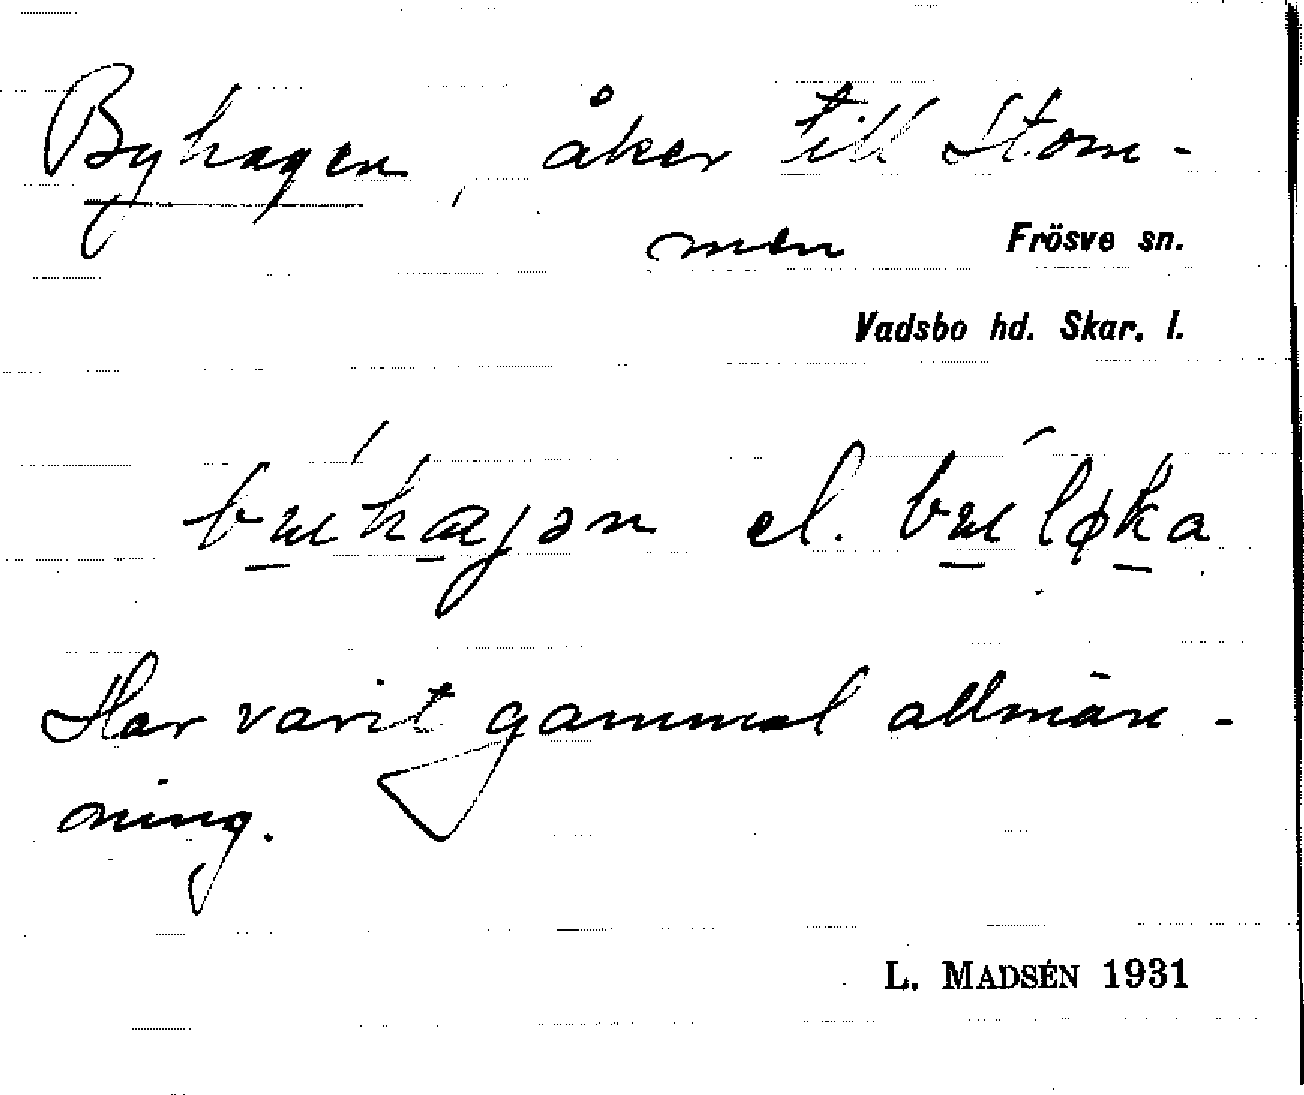 Byhagen, åker till Stom-
men
Frösve sn.
Vadsbo hd. Skar. l.
el.
Har varit gammal allmän-
ning.
L. MADSÉN 1931